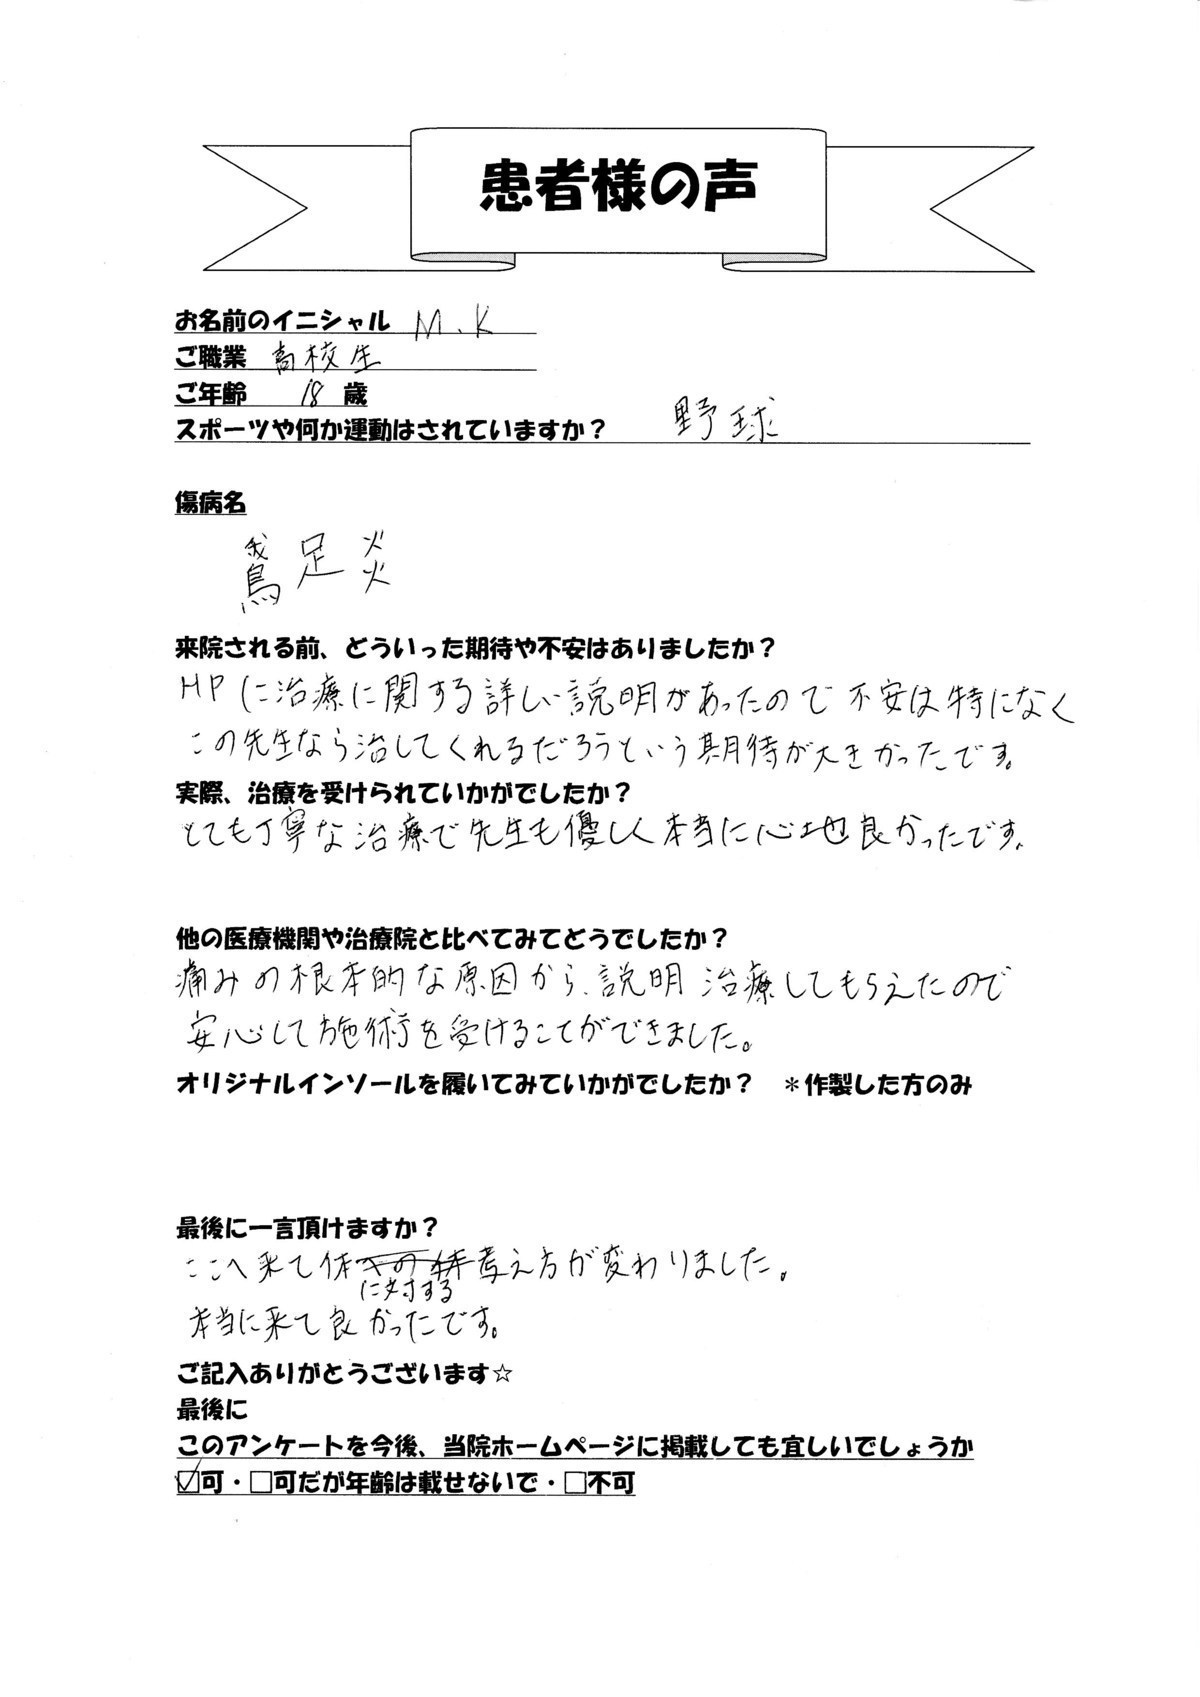 患者様の声
お名前のイニシャル M.K
ご職業 高校生
ご年齢 18 歳
スポーツや何か運動はされていますか？ 野球
傷病名
鵞足炎
来院される前、どういった期待や不安はありましたか？
HPに治療に関する詳しい説明があったので不安は特になく
この先生なら治してくれるだろうという期待が大きかったです。
実際、治療を受けられていかがでしたか？
とても丁寧な治療で先生も優しく本当に心地良かったです。
他の医療機関や治療院と比べてみてどうでしたか？
痛みの根本的な原因から、説明 治療してもらえたので
安心して施術を受けることができました。
オリジナルインソールを履いてみていかがでしたか？ ＊作製した方のみ
最後に一言頂けますか？
ここへ来て体に対する考え方が変わりました。
本当に来て良かったです。
ご記入ありがとうございます☆
最後に
このアンケートを今後、当院ホームページに掲載しても宜しいでしょうか
☑可・□可だが年齢は載せないで・□不可